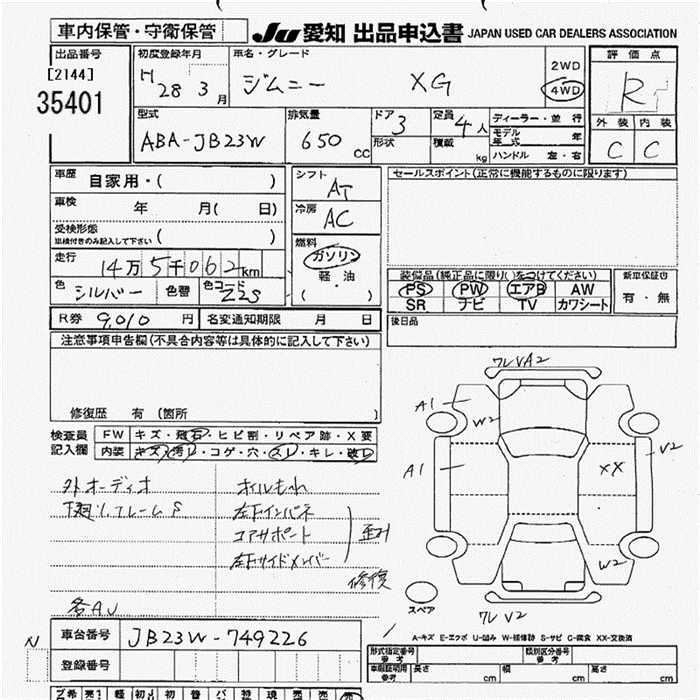 車内保管・守衛保管 JU 愛知 出品申込書 JAPAN USED CAR DEALERS ASSOCIATION
出品番号 初度登録年月 車名・グレード 2WD 評価点
[2144] H 28 3月 ジムニー XG 4WD R
35401
型式 排気量 ドア 定員 ディーラー・並行 外装 内装
ABA-JB23W 650cc 3 4人 モデル年式 年 C C
形状 積載 kg ハンドル 左・右
車歴 自家用・( ) シフト AT セールスポイント(正常に機能するものに限ります)
車検 年 月( 日) 冷房 AC
受検形態
車検付きのみ記入して下さい ( ) 燃料
走行 14万5千062km ガソリン
軽・油
( ・ )
色 シルバー 色替 色コード Z2S
装備品(純正品に限り○をつけてください) 新車保証書
PS PW エアB AW 有・無
SR ナビ TV カワシート
R券 9,010円 名変通知期限 月 日 後日品
注意事項申告欄(不具合内容等は具体的に記入して下さい)
修復歴 有 (箇所 )
検査員記入欄 FW キズ・飛石・ヒビ割・リペア跡・X要
内装 キズ・汚れ・コゲ・穴・スレ・キレ・破れ
外オーディオ オイルもれ
下廻り、フレームS 左下インパネ
コアサポート 歪み
左下サイドメンバー
修復
各AU
フレVA2
A1 W2
A1 XX V2
W2
スペア
フレV2
A-キズ E-エクボ U-凹み W-補修跡 S-サビ C-腐食 XX-交換済
N 車台番号 JB23W-749226
登録番号
形式指定番号 参考 類別区分番号 参考
車庫証明用 参考 長さ cm 幅 cm 高さ cm